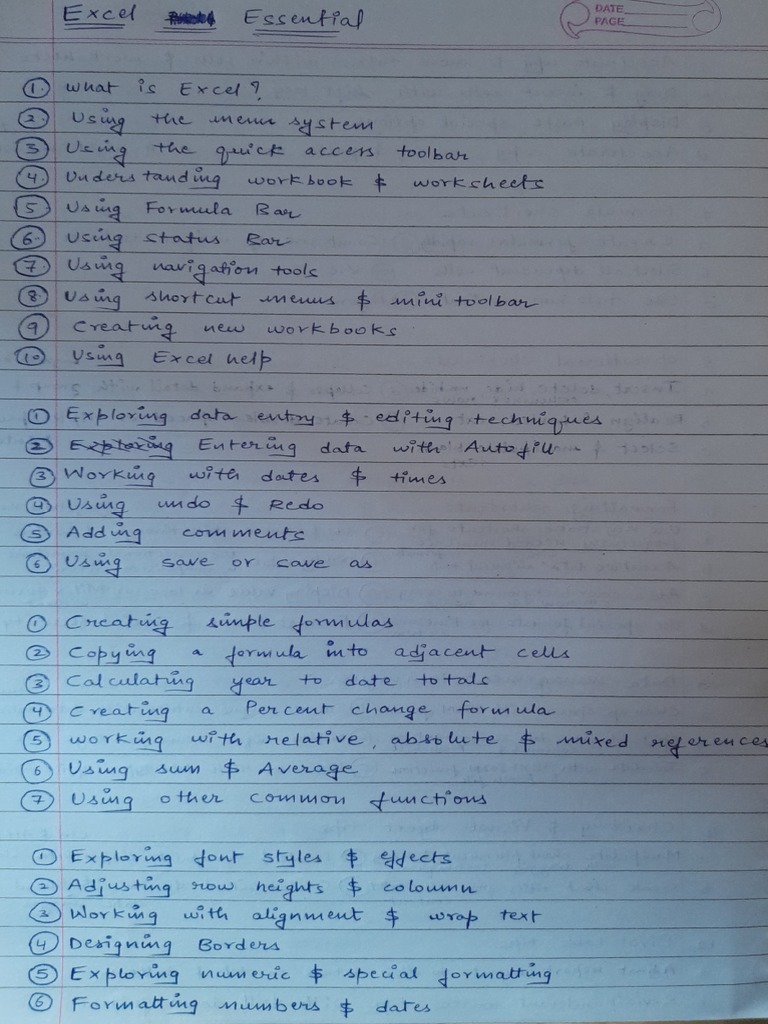 Excel Essential
DATE
PAGE
1. What is Excel?
2. Using the menu system
3 Using the quick access toolbar
4. Understanding workbook & worksheets
5 Using Formula Bar
6. Using Status Bar
7. Using navigation tools
8. Using shortcut menus & mini toolbar
9 Creating new workbooks
10. Using Excel help
1 Exploring data entry & editing techniques
2 Entering data with Autofill
3 Working with dates & times
4 Using undo & Redo
5 Adding comments
6 Using save or save as
1 Creating simple formulas
2 Copying a formula into adjacent cells
3 Calculating year to date totals
4 Creating a Percent change formula
5 working with relative, absolute & mixed references
6 Using sum & Average
7 Using other common functions
1 Exploring font styles & effects
2 Adjusting row heights & coloumn
3 Working with alignment & wrap text
4 Designing Borders
5 Exploring numeric & special formatting
6 Formatting numbers & dates